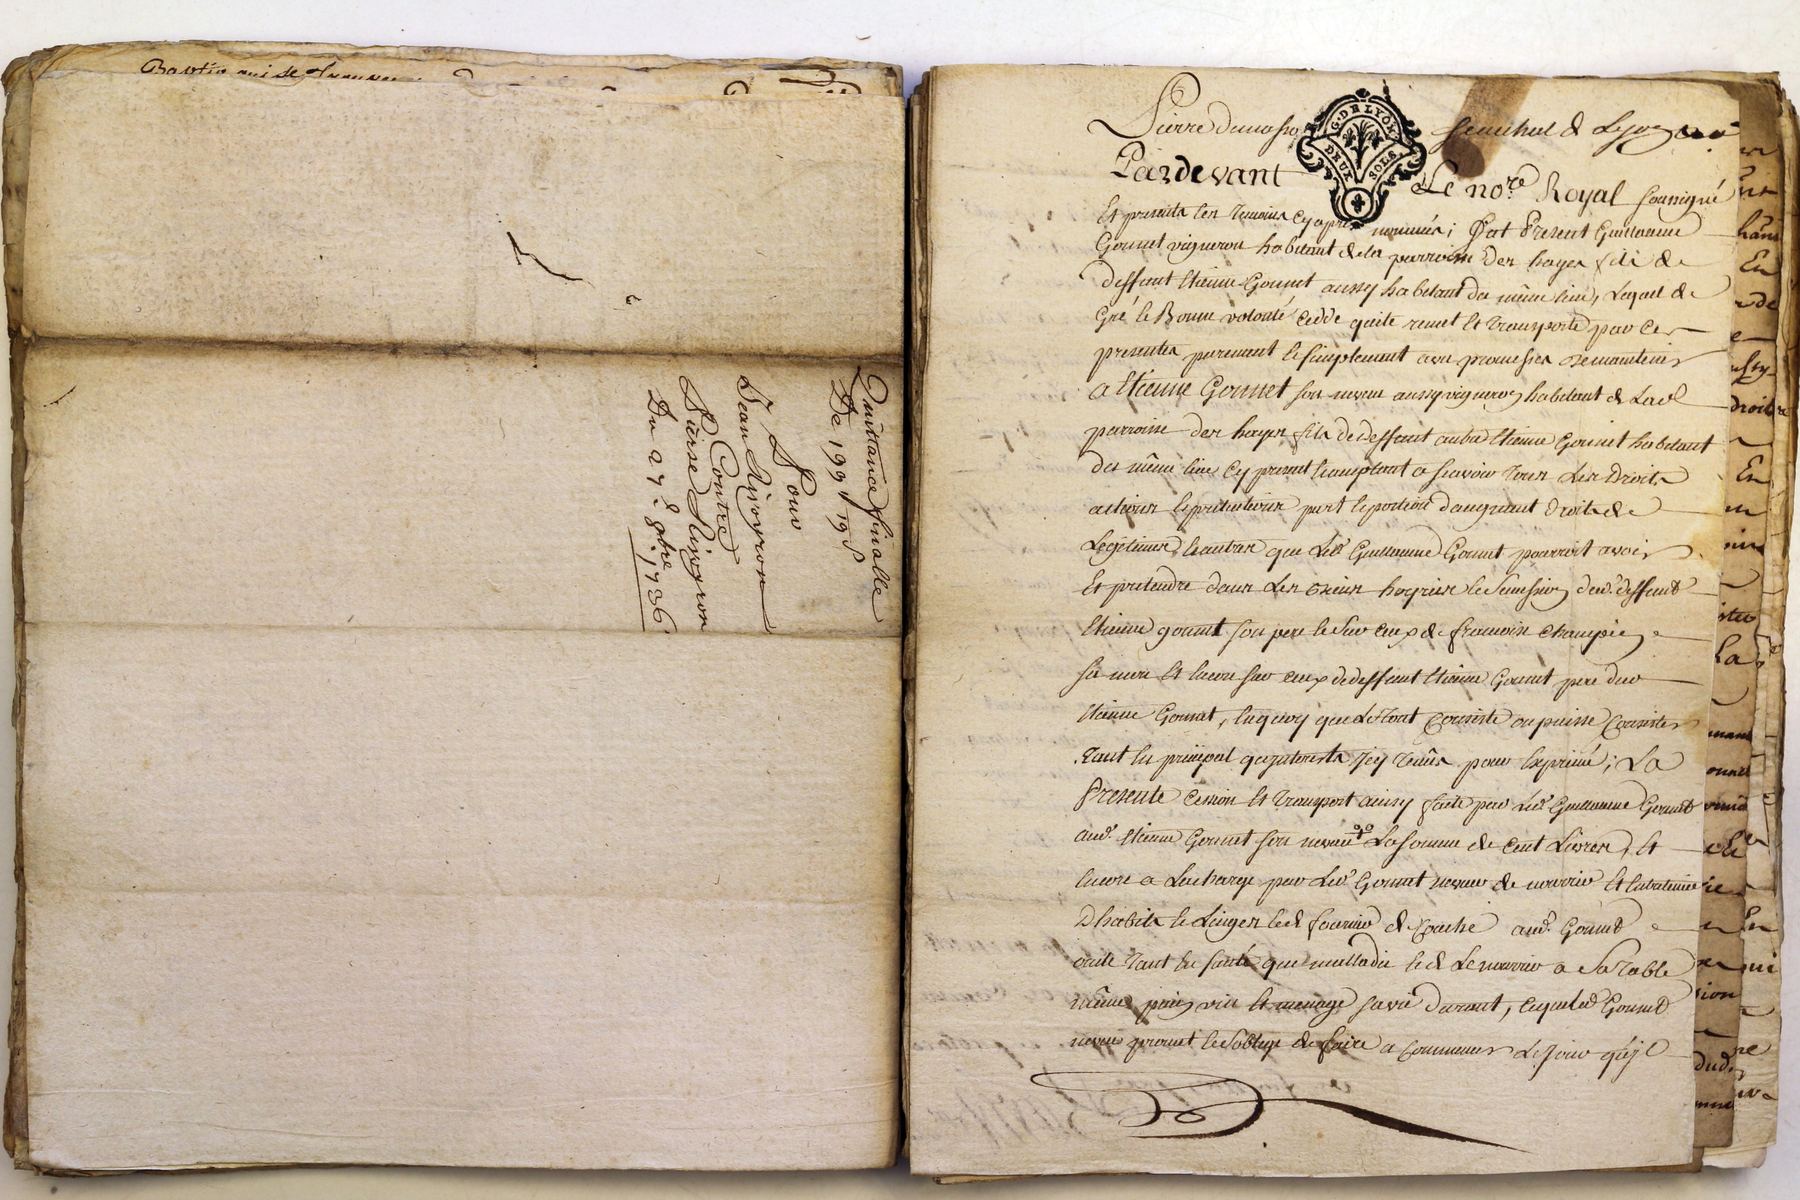 Quittance finalle
De 199ᴸ 19ˢ
Pour
Jean Rivoyron
Contre
Pierre Rivoyron
Du 27ᵉ 8bre 1736
Pierre senechal de Lyon
G. DE LYON
DEUX SOLS
Pardevant Le no.re Royal soussigné
Et presents les Temoins cy apres nommés ; fut Present Guillaume
Gonnet vigneron habitant de la parroisse des hayes fils de
deffunt Etienne Gonnet aussy habitant du même lieu, Lequel de
Gré et Bonne volonté cedde quite remet et transporte par ces
presentes purement et simplement avec promesses de maintenir
a Etienne Gonnet son neveu aussy vigneron habitant de Lad
parroisse des hayes fils de deffunt autre Etienne Gonnet habitant
du même lieu cy present acceptant a scavoir Tous Les Droits
actions et pretentions part et portion d'augment droits de
Legitime et autres que Led Guillaume Gonnet pourroit avoir
Et pretendre dans Les Biens hoyries et sucession dud. deffunt
Etienne gonnet son pere et sur ceux de francoise
sa mere Et encore sur ceux de deffunt Etienne Gonnet pere dud
Etienne Gonnet, en quoy que Le Tout Consiste ou puisse Consister
Tant en principal qu'interests Icy Tenus pour exprimé ; La
Presente cession et transport ainsy faite par Led Guillaume Gonnet
aud. Etienne Gonnet son neveu La somme de Cent Livres, Et
Encore a La charge par Led Gonnet neveu de nourrir et entretenir
D'habits et Linges et de fournir de Couche aud. Gonnet
oncle Tant en santé que malladie et de Le nourrir a sa Table
même pain vin et menage sa vie durant, ce que led Gonnet
neveu promet et s'oblige de faire a Commencer Le jour qu'il